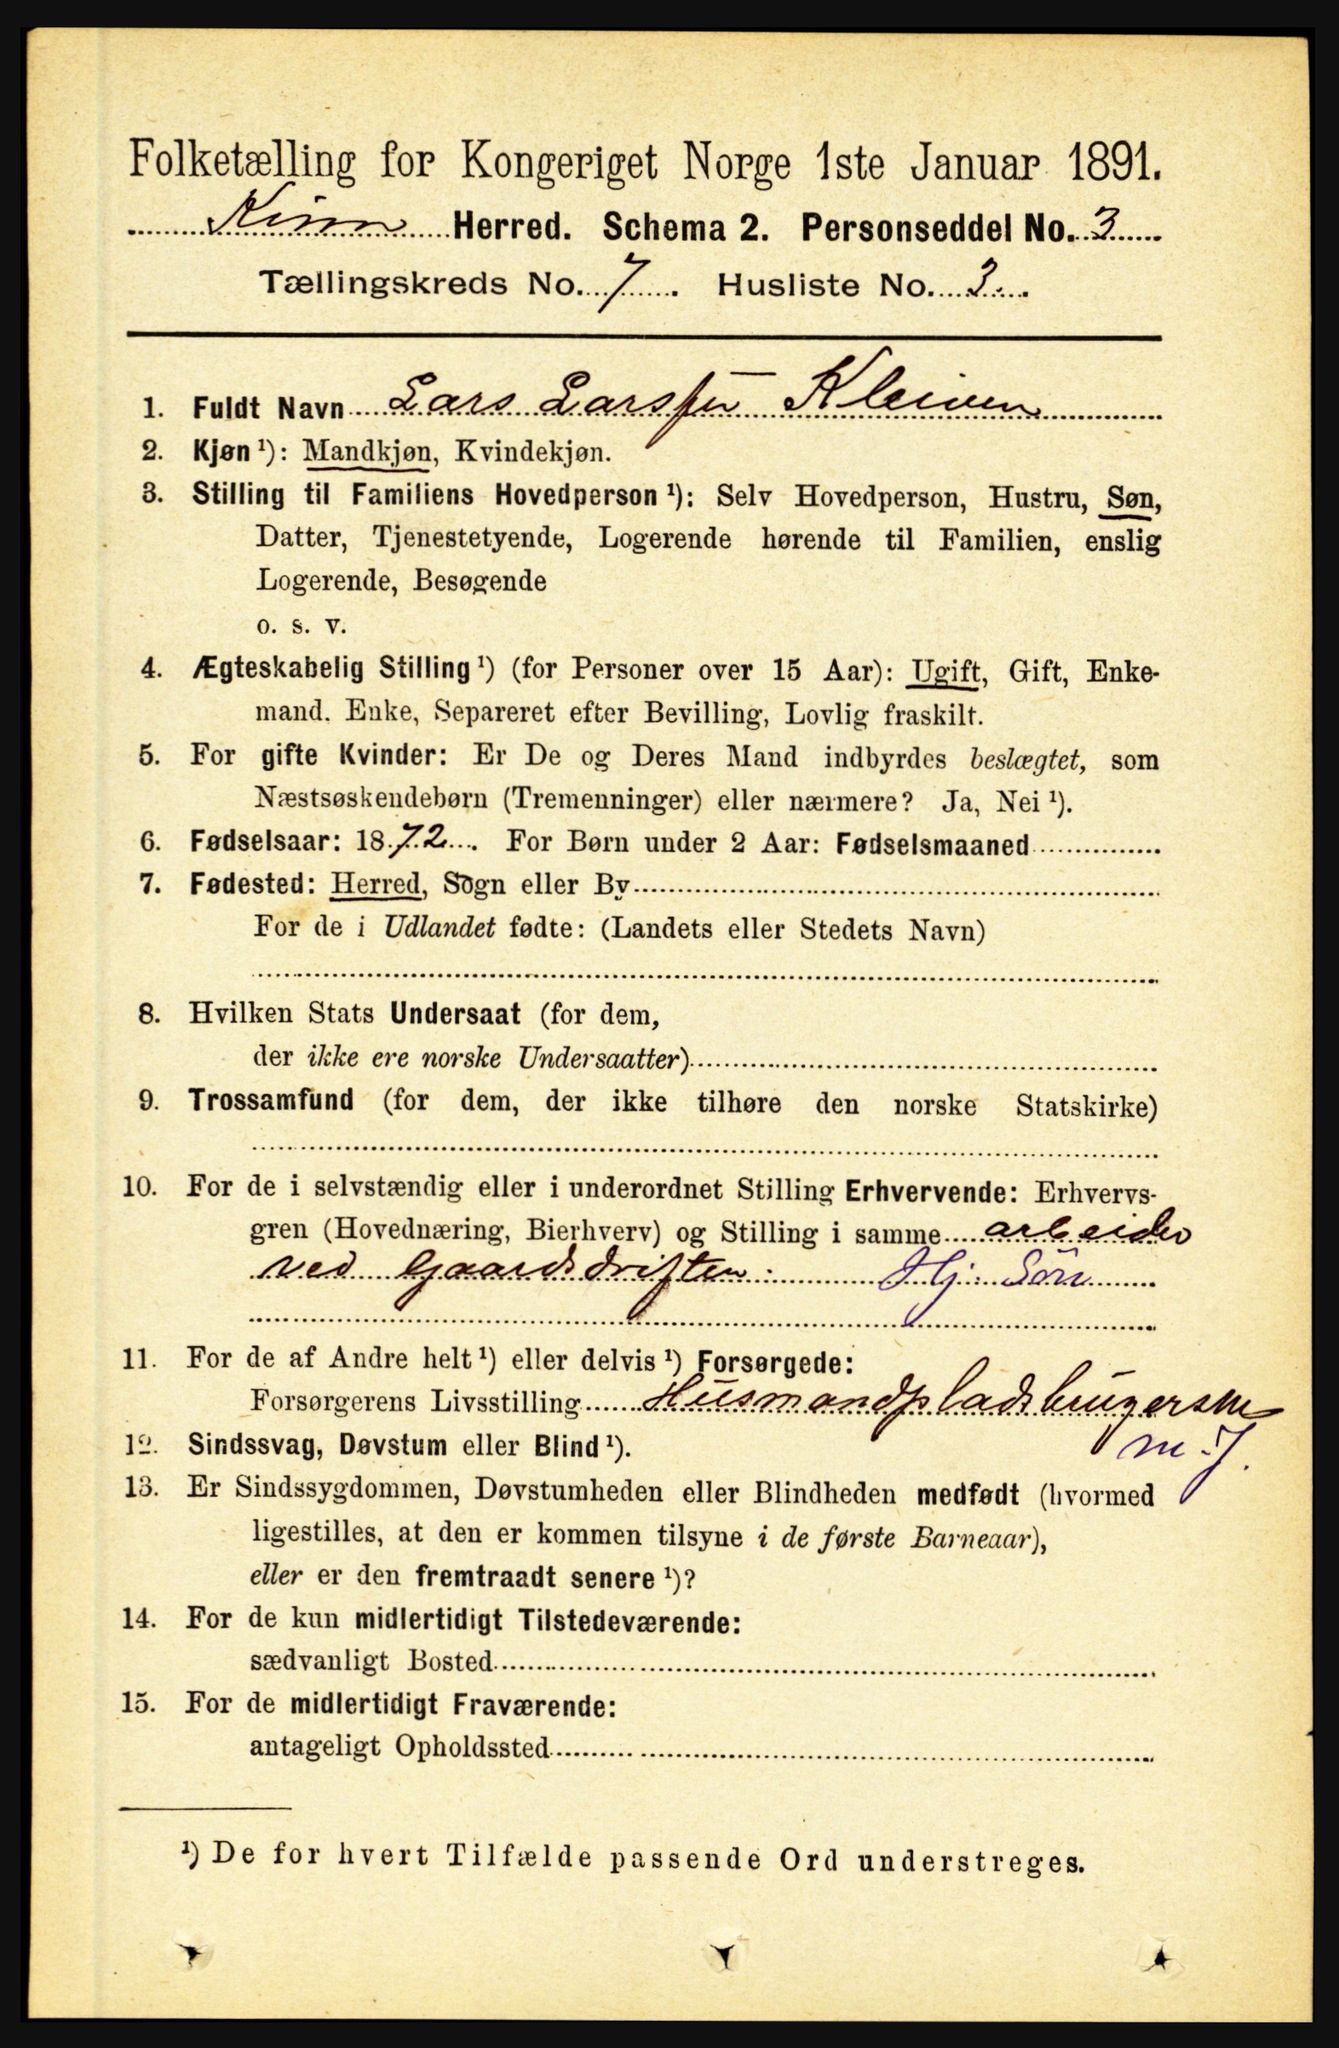 Folketælling for Kongeriget Norge 1ste Januar 1891.
Kinn Herred. Schema 2. Personseddel No. 3
Tællingskreds No. 7. Husliste No. 3.
1. Fuldt Navn Lars Larssen Kleiven
2. Kjøn ¹): Mandkjøn, Kvindekjøn.
3. Stilling til Familiens Hovedperson ¹): Selv Hovedperson, Hustru, Søn,
Datter, Tjenestetyende, Logerende hørende til Familien, enslig
Logerende, Besøgende
o. s. v.
4. Ægteskabelig Stilling ¹) (for Personer over 15 Aar): Ugift, Gift, Enke-
mand. Enke, Separeret efter Bevilling, Lovlig fraskilt.
5. For gifte Kvinder: Er De og Deres Mand indbyrdes beslægtet, som
Næstsøskendebørn (Tremenninger) eller nærmere? Ja, Nei ¹).
6. Fødselsaar: 1872. For Børn under 2 Aar: Fødselsmaaned
7. Fødested: Herred, Sogn eller By
For de i Udlandet fødte: (Landets eller Stedets Navn)
8. Hvilken Stats Undersaat (for dem,
der ikke ere norske Undersaatter)
9. Trossamfund (for dem, der ikke tilhøre den norske Statskirke)
10. For de i selvstændig eller i underordnet Stilling Erhvervende: Erhvervs-
gren (Hovednæring, Bierhverv) og Stilling i samme arbeider
ved Gaardsdriften. Hj: Søn
11. For de af Andre helt ¹) eller delvis ¹) Forsørgede:
Forsørgerens Livsstilling Husmandpladsbrugerske
m. J.
12. Sindssvag, Døvstum eller Blind ¹).
13. Er Sindssygdommen, Døvstumheden eller Blindheden medfødt (hvormed
ligestilles, at den er kommen tilsyne i de første Barneaar),
eller er den fremtraadt senere ¹)?
14. For de kun midlertidigt Tilstedeværende:
sædvanligt Bosted
15. For de midlertidigt Fraværende:
antageligt Opholdssted
¹) De for hvert Tilfælde passende Ord understreges.